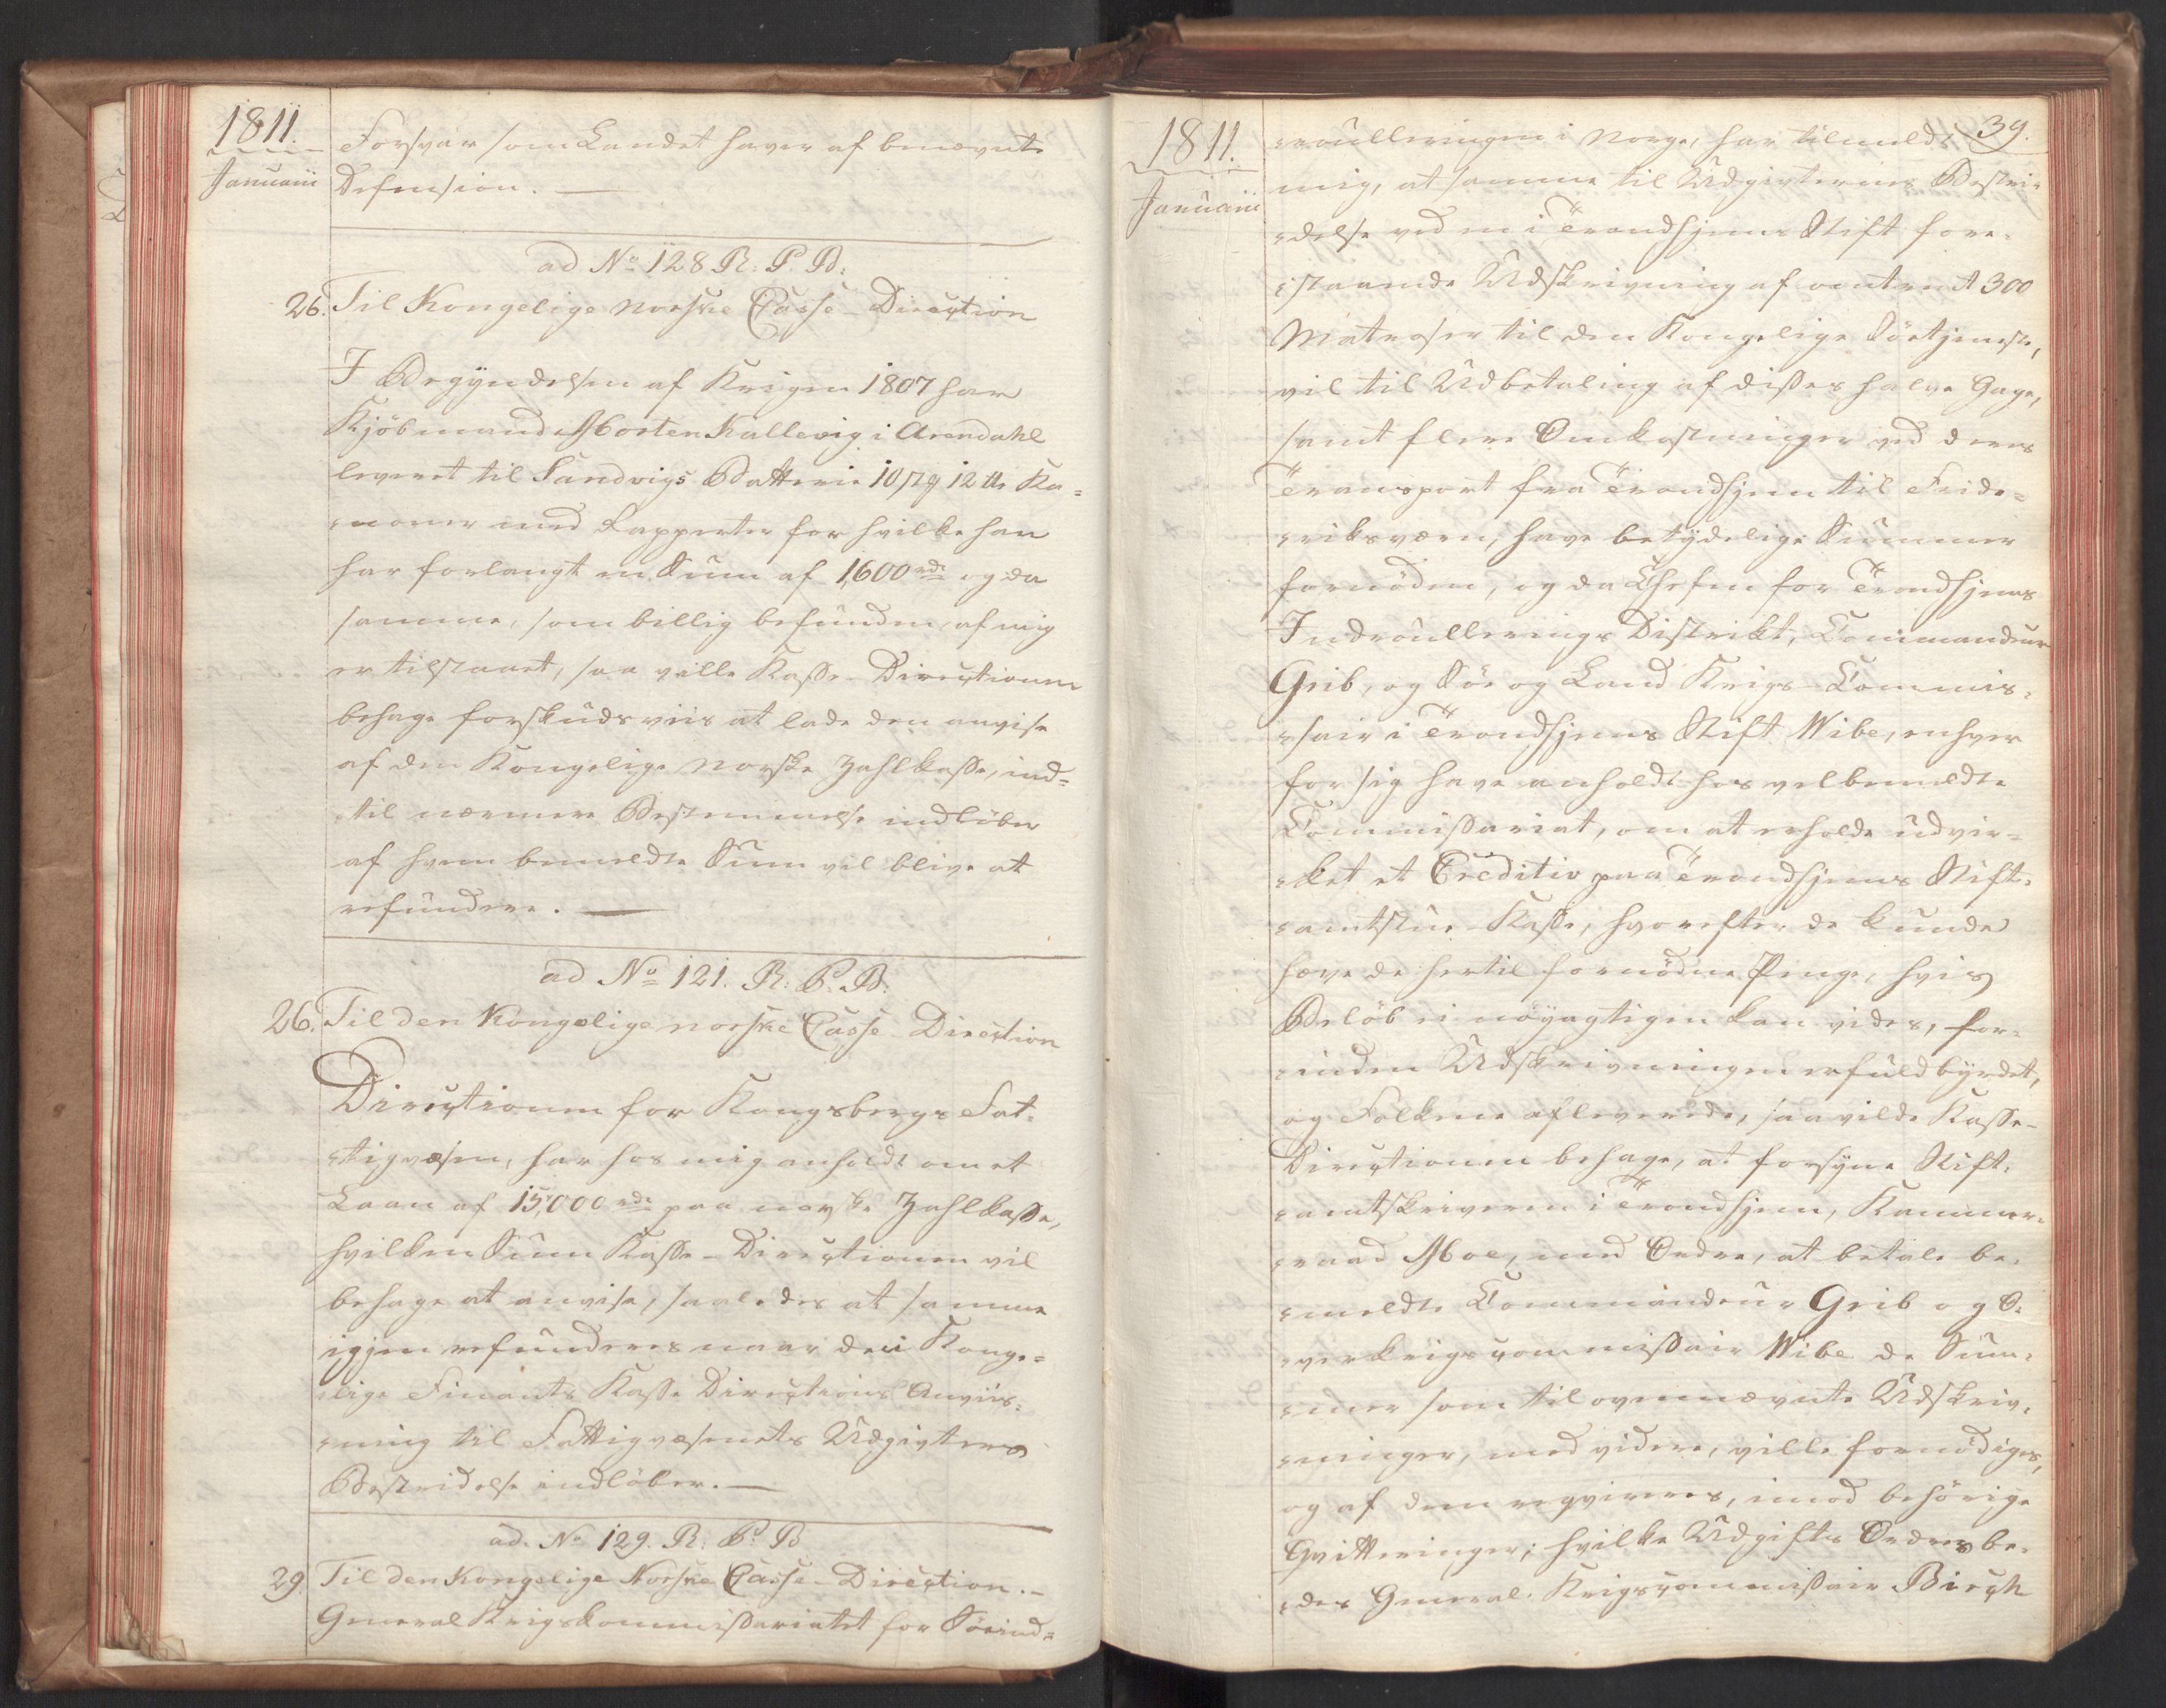 1811.
Januarii
Forsvar som Landet haver af benævnte
Defension. —
ad No 128 R: P. B:
26. Til Kongelige norske Casse-Direction
I Begyndelsen af Krigen 1807 har
Kjöbmand Morten Kallevig i Arendahl
leveret til Sandvigs Batterie 10 stq 12 ℔ Ka=
=noner med Rapperter for hvilke han
har forlangt en Sum af 1,600 rdr og da
samme, som billig befunden, af mig
er tilstaaet, saa ville Kasse-Directionen
behage forskudsviis at lade den anvise
af den Kongelige norske Zahlkasse, ind=
til nærmere Bestemmelse indlöber
af hvem bemeldte Sum vil blive at
refundere. —
ad No 121. R: P. B:
26. Til den Kongelige norske Casse-Direction
Directionen for Kongsbergs Fat=
=tigvæsen, har hos mig anholdt om et
Laan af 15,000 rdr paa norske Zahlkasse,
hvilken Sum Kasse-Directionen vil
behage at anvise, saaledes at samme
igjen refunderes naar den Konge=
=lige Finants Kasse Directions Anviis=
=ning til Fattigvæsenets Udgivters
Bestridelse indlöber. —
ad. No 129. R: P. B
29. Til den Kongelige Norske Casse-Direction. -
General Krigskommissariatet for Söeind=
39.
1811.
Januarii
=roulleringen i Norge, har tilmeldt
mig, at samme til Udgivternes Bestri=
=delse ved en i Trondhjems Stift fore=
=staaende Udskrivning af omtrent 300
Matroser til den Kongelige Söetjeneste,
vil til Udbetaling af disses halve Gage,
samt flere Omkostninger ved deres
Transport fra Trondhjem til Fride=
=riksværn, have betydelige Summer
fornöden, og da Chefen for Trondhjems
Indroullerings Distrikt, Commandeur
Grib, og Söe og Land Krigs-Commis=
=sair i Trondhjems Stift Wibe, enhver
for sig have anholdt hos velbemeldte
Commissariat, om at erholde udvir=
=ket et Creditiv paa Trondhjems Stift=
=amtstue-Kasse, hvorefter de kunde
hæve de hertil fornödne Penge, hvis
Belöb ei nöyagtigen kan vides, for=
=inden Udskrivningen er fuldbyrdet,
og Folkene afleverede, saa vilde Kasse-
Directionen behage, at forsyne Stift=
=amtskriveren i Trondhjem, Kammer=
=raad Moe, med Ordre, at betale be=
=meldte Commandeur Grib og O=
=verkrigscommissair Wibe de Sum=
=mer som til ovennævnte Udskriv=
=ninger, med videre, ville fornödiges,
og af dem reqvireres, imod behörige
Qvitteringer; hvilke Udgifts Ordres be=
=des General-Krigscommissair Birch